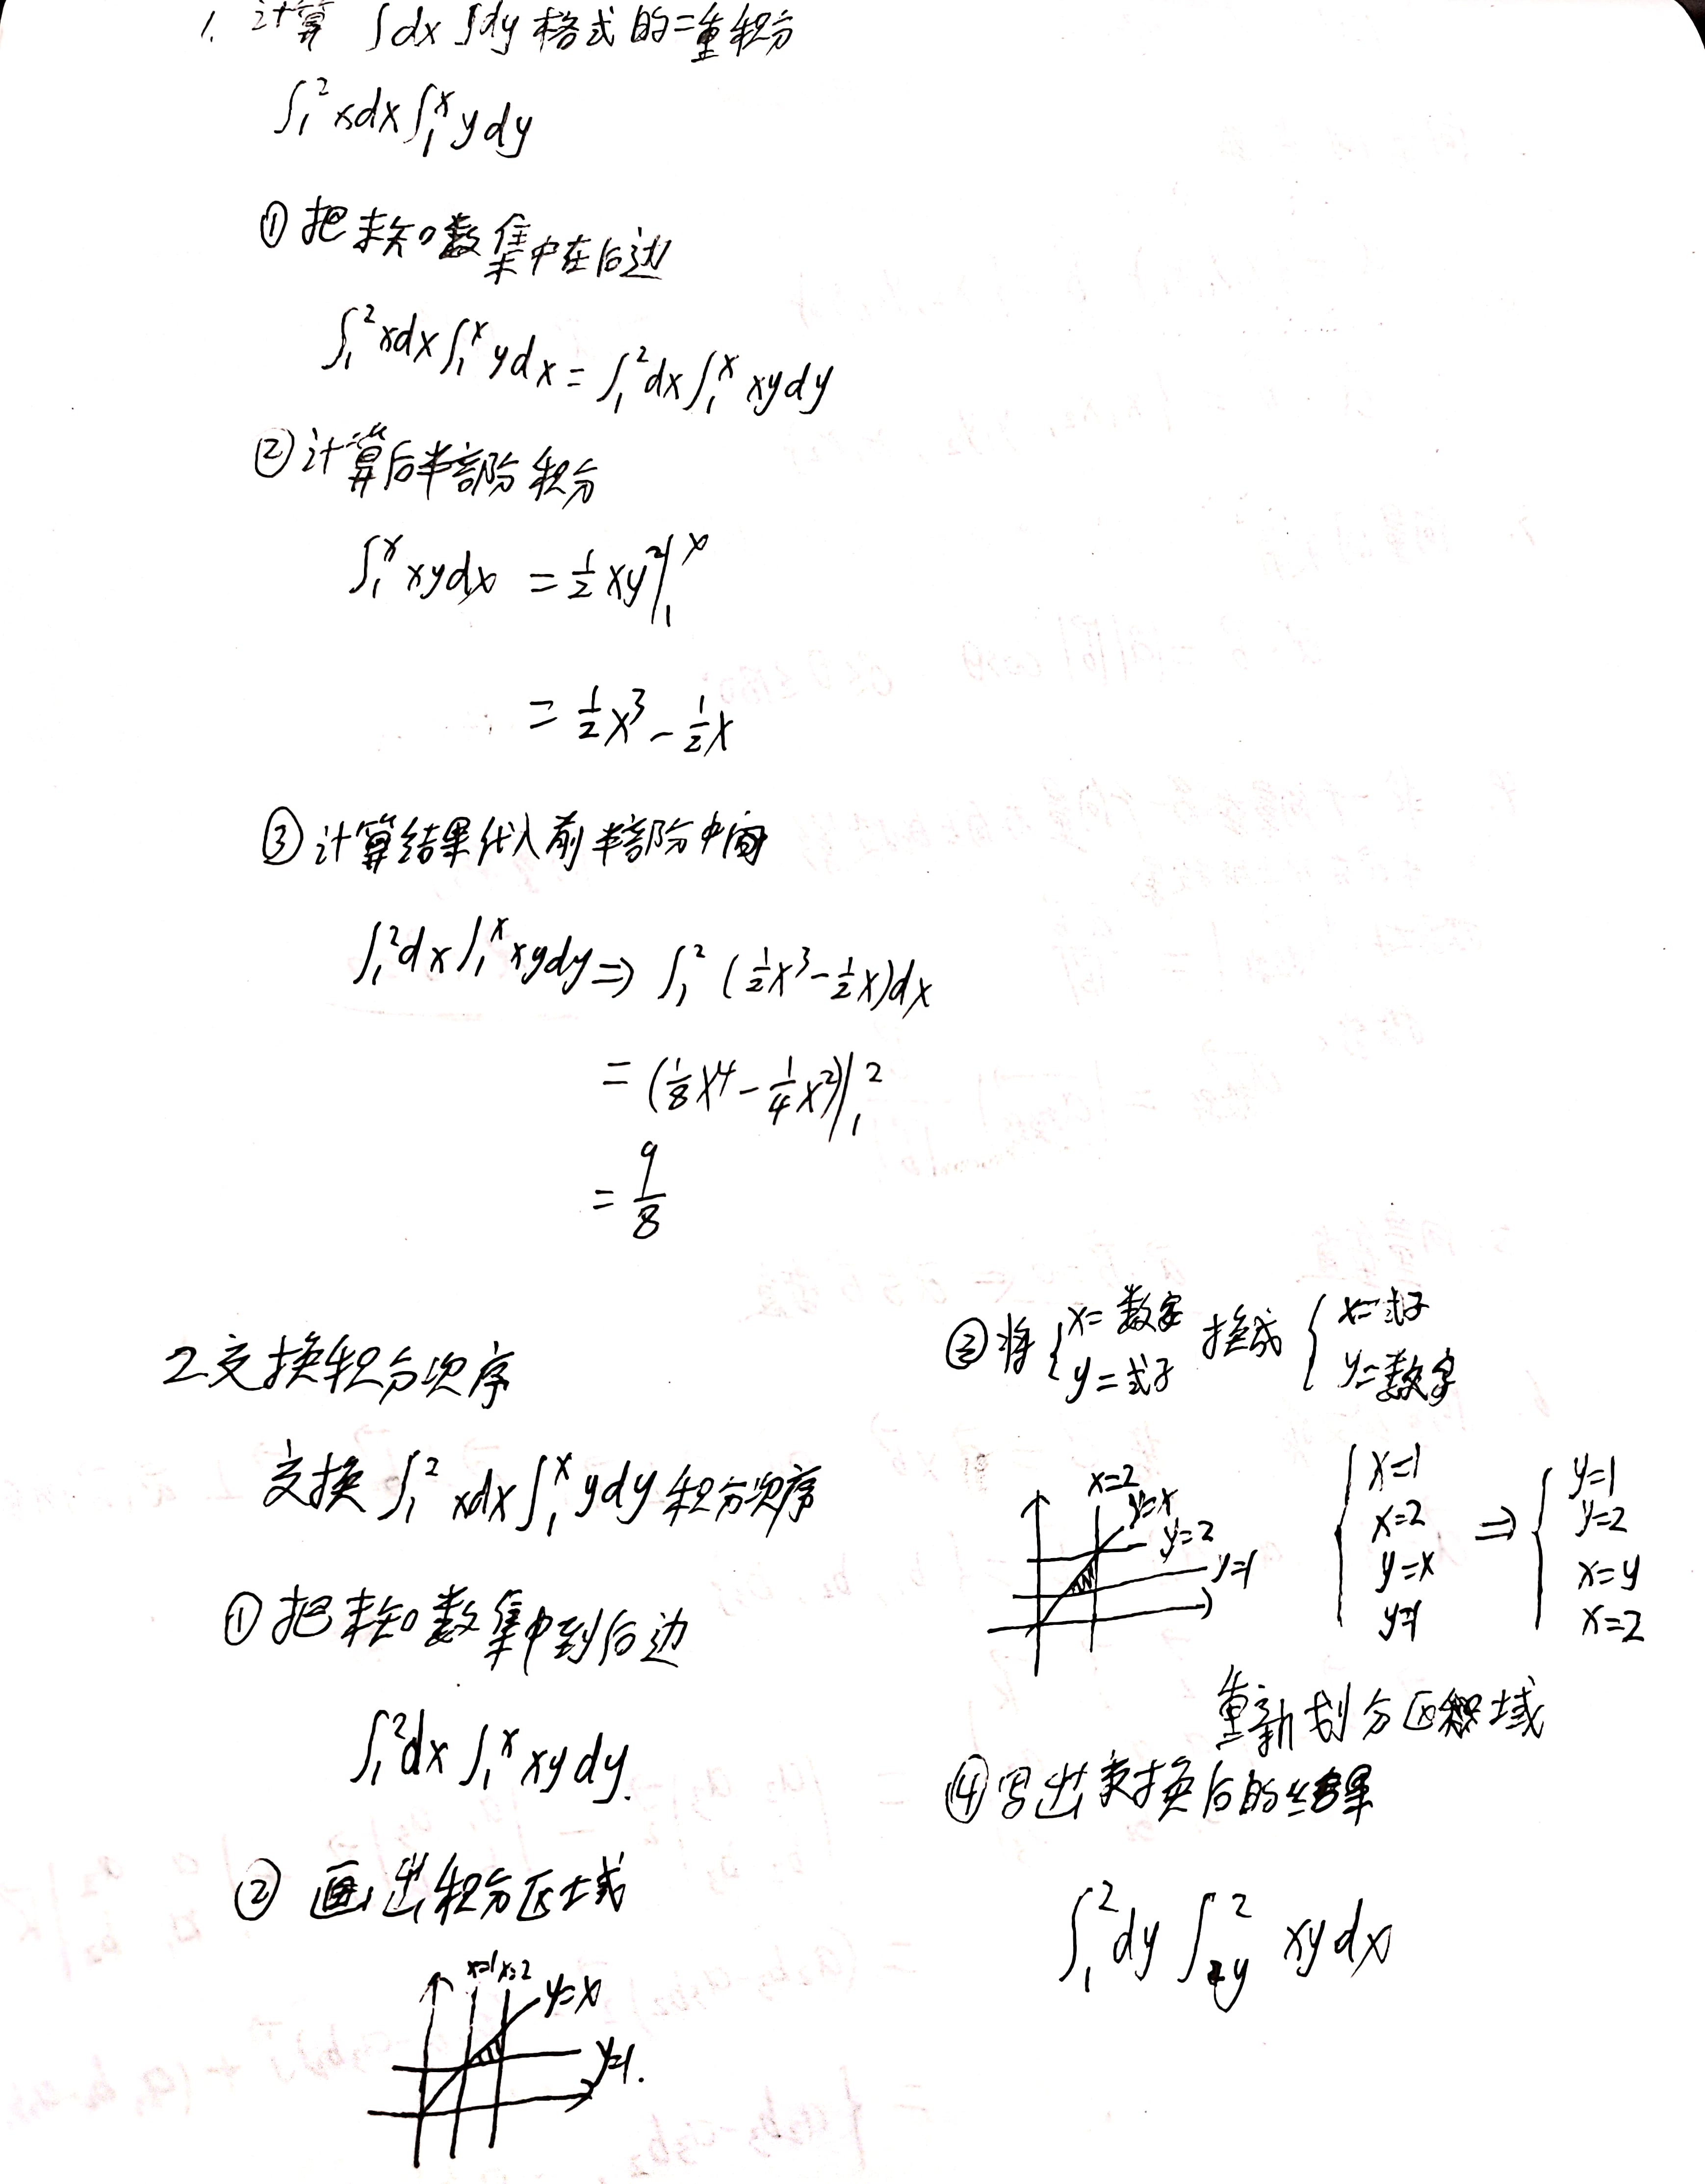 1. 计算 ∫dx∫dy 格式的二重积分
∫₁² xdx ∫₁ˣ ydy
① 把未知数集中在后边
∫₁² xdx ∫₁ˣ ydx = ∫₁² dx ∫₁ˣ xydy
② 计算后半部分积分
∫₁ˣ xydx = ½xy²|₁ˣ
= ½x³ - ½x
③ 计算结果代入前半部分中间
∫₁² dx ∫₁ˣ xydy ⇒ ∫₁² (½x³ - ½x)dx
= (⅛x⁴ - ¼x²)|₁²
= 9/8
2. 交换积分次序
交换 ∫₁² xdx ∫₁ˣ ydy 积分次序
① 把未知数集中到后边
∫₁² dx ∫₁ˣ xydy.
② 画出积分区域
x=1 x=2
y=x
y=1.
③ 将 { x=数字 y=式子 换成 { x=式子 y=数字
x=2
y=x
y=2
y=1
{ x=1 x=2 y=x y=1 ⇒ { y=1 y=2 x=y x=2
重新划分区域
④ 写出交换后的结果
∫₁² dy ∫_y² xydx